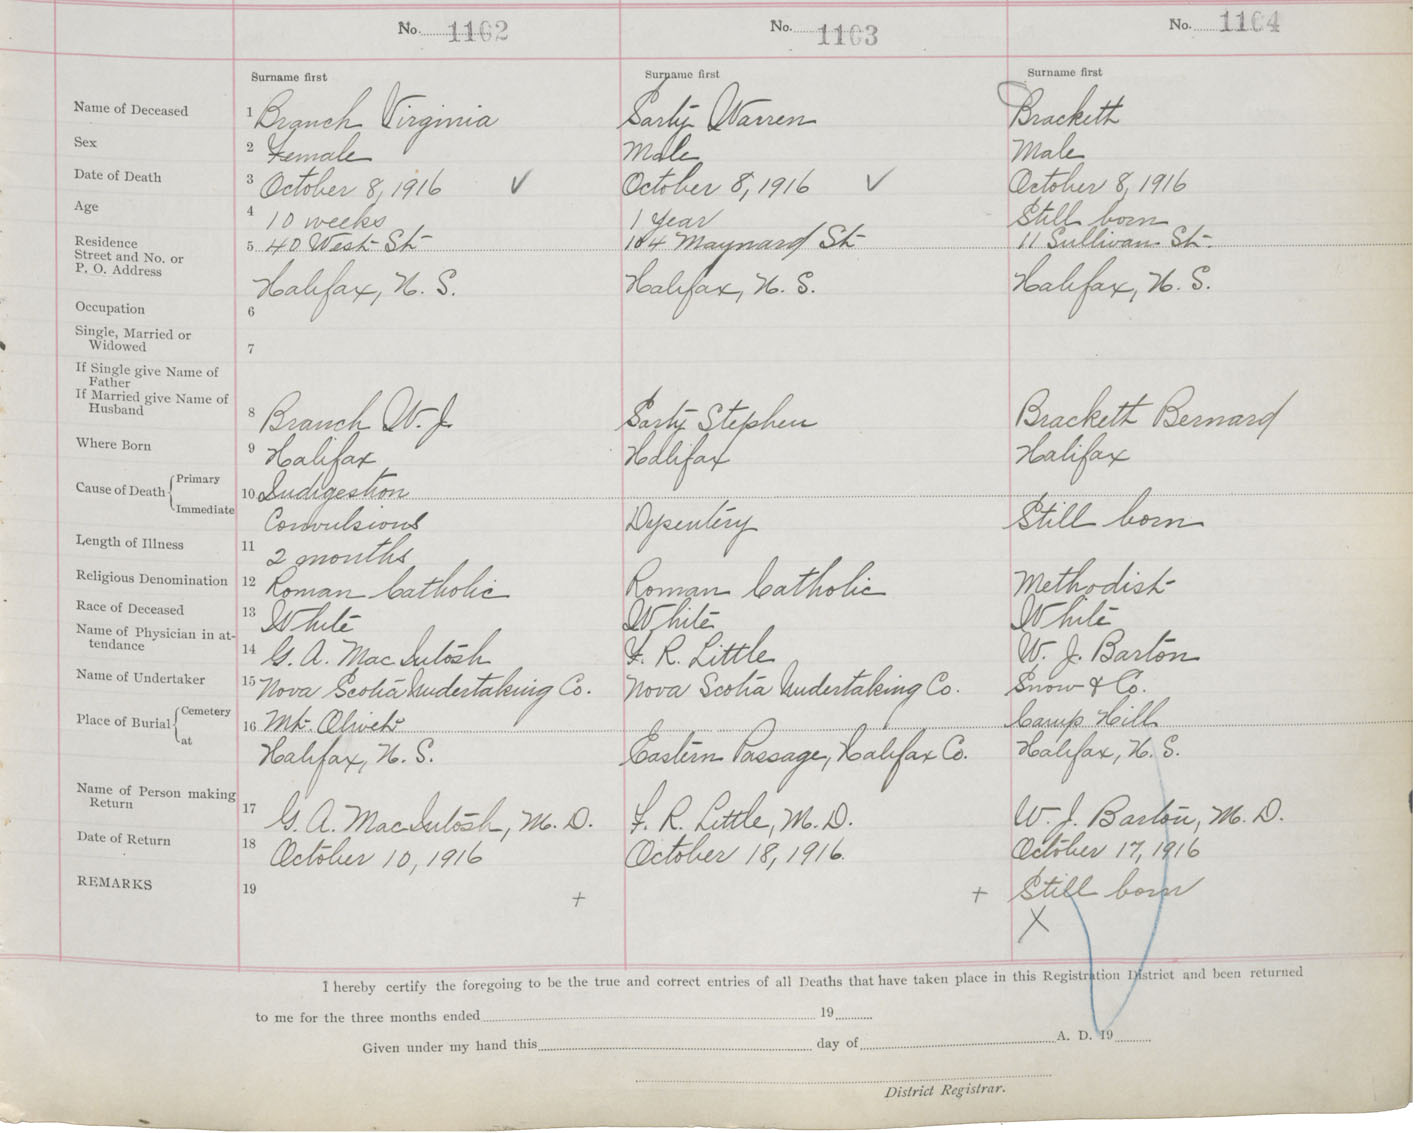 No. 1102 No. 1103 No. 1104
Surname first Surname first Surname first
Name of Deceased 1 Branch Virginia Sarty Warren Brackett
Sex 2 Female Male Male
Date of Death 3 October 8, 1916 ✓ October 8, 1916 ✓ October 8, 1916
Age 4 10 weeks 1 year Still born
Residence
Street and No. or 5 40 West St 104 Maynard St 11 Sullivan St.
P. O. Address
Halifax, N. S. Halifax, N. S. Halifax, N. S.
Occupation 6
Single, Married or
Widowed 7
If Single give Name of
Father
If Married give Name of
Husband 8 Branch W. J. Sarty Stephen Brackett Bernard
Where Born 9 Halifax Halifax Halifax
Cause of Death Primary 10 Indigestion
Immediate Convulsions Dysentery Still born
Length of Illness 11 2 months
Religious Denomination 12 Roman Catholic Roman Catholic Methodist
Race of Deceased 13 White White White
Name of Physician in at-
tendance 14 G. A. MacIntosh F. R. Little W. J. Barton
Name of Undertaker 15 Nova Scotia Undertaking Co. Nova Scotia Undertaking Co. Snow & Co.
Place of Burial Cemetery 16 Mt. Olivet Camp Hill
at Halifax, N. S. Eastern Passage, Halifax Co. Halifax, N. S.
Name of Person making
Return 17 G. A. MacIntosh, M. D. F. R. Little, M. D. W. J. Barton, M. D.
Date of Return 18 October 10, 1916 October 18, 1916. October 17, 1916
REMARKS 19 + + Still born
X
I hereby certify the foregoing to be the true and correct entries of all Deaths that have taken place in this Registration District and been returned
to me for the three months ended 19
Given under my hand this day of A. D. 19
District Registrar.